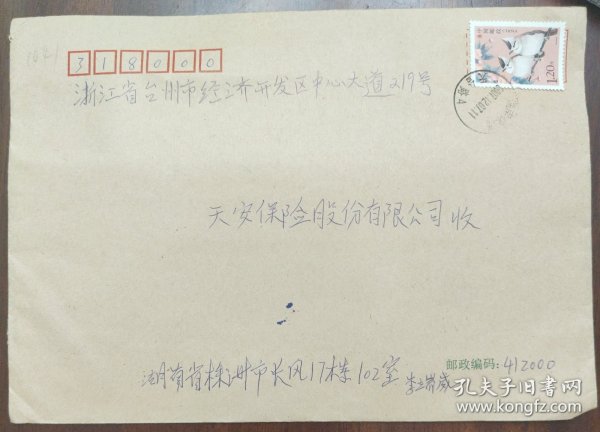 中国邮政 CHINA
1.20元
318000
浙江省台州市经济开发区中心大道219号
天安保险股份有限公司收
邮政编码: 412000
湖南省株洲市长风17栋102室
孔夫子旧书网
www.kongfz.com